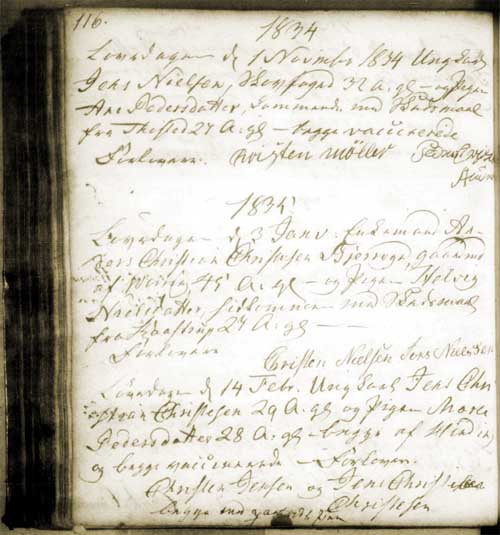 116.
1834
Løverdagen d 1 November 1834 Ungkarl
Jens Nielsen, Skovfoged 32 A. gl – og Pigen
Ane Pedersdatter, kommende med Skudsmaal
fra Thisted 27 A. gl – begge vaccinerede
Forlovere. Christen Møller
1835
Løverdagen d 3 Janv. Enkemand An-
ders Christian Christensen
45 A. gl – og Pigen
Nielsdatter, hidkommen med Skudsmaal
fra 27 A. gl –
Forlovere
Christen Nielsen Jens Nielsen
Løverdagen d 14 Febr. Ungkarl Jens Chri
Christesen 29 A. gl og Pigen Maren
Pedersdatter 28 A. gl – begge af
og begge vaccinerede – Forlovere.
Christen Jensen og Jens Christian
Christesen
begge